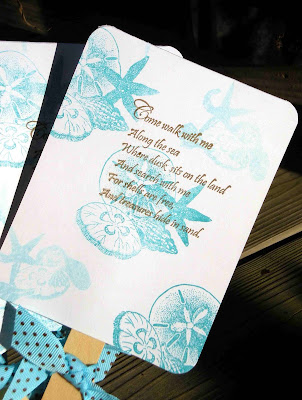 Come walk with me
Along the sea
Where dusk sits on the land
And search with me
For shells are free
And treasures hide in sand.